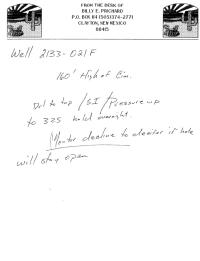 FROM THE DESK OF
BILLY E. PRICHARD
P.O. BOX 84 (505)374-2771
CLAYTON, NEW MEXICO
88415
Well 2133-021F
160' High of Cim.
Dul to top / SI / Pressure up
to 325 hold overnight.
Monitor decline to decide if hole
will stay open